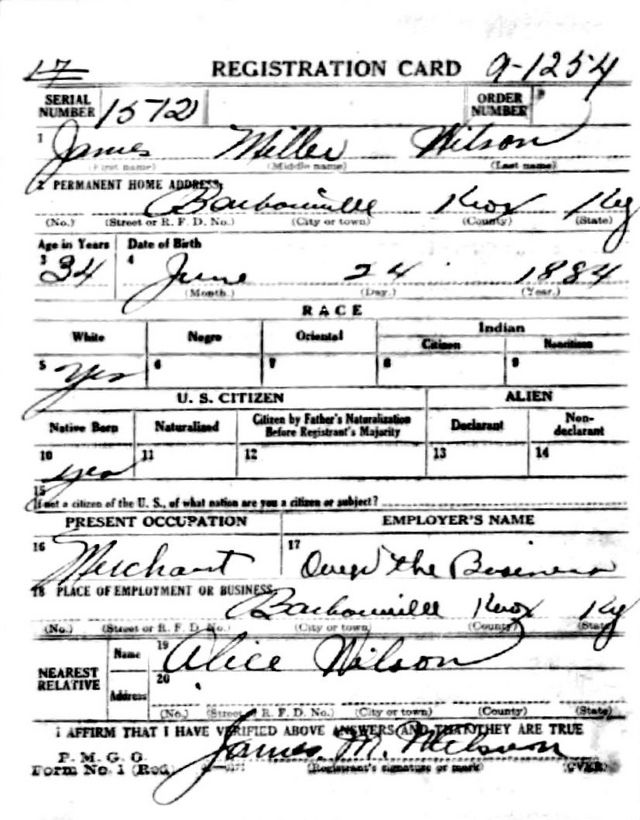 17 REGISTRATION CARD 9-1254
SERIAL NUMBER 1572 ORDER NUMBER
1 James Miller Wilson
(First name) (Middle name) (Last name)
2 PERMANENT HOME ADDRESS:
Barbourville Knox Ky
(No.) (Street or R. F. D. No.) (City or town) (County) (State)
Age in Years Date of Birth
3 34 4 June 24 1884
(Month.) (Day.) (Year.)
RACE
White Negro Oriental Indian
Citizen Noncitizen
5 Yes 6 7 8 9
U. S. CITIZEN ALIEN
Native Born Naturalized Citizen by Father's Naturalization Before Registrant's Majority Declarant Non-declarant
10 yes 11 12 13 14
15
If not a citizen of the U. S., of what nation are you a citizen or subject?
PRESENT OCCUPATION EMPLOYER'S NAME
16 Merchant 17 the Business
18 PLACE OF EMPLOYMENT OR BUSINESS:
Barbourville Knox Ky
(No.) (Street or R. F. D. No.) (City or town) (County) (State)
NEAREST RELATIVE Name 19 Alice Wilson
Address 20
(No.) (Street or R. F. D. No.) (City or town) (County) (State)
I AFFIRM THAT I HAVE VERIFIED ABOVE ANSWERS AND THAT THEY ARE TRUE
James M. Wilson
P. M. G. O.
Form No. 1 (Red) (Registrant's signature or mark) (OVER)